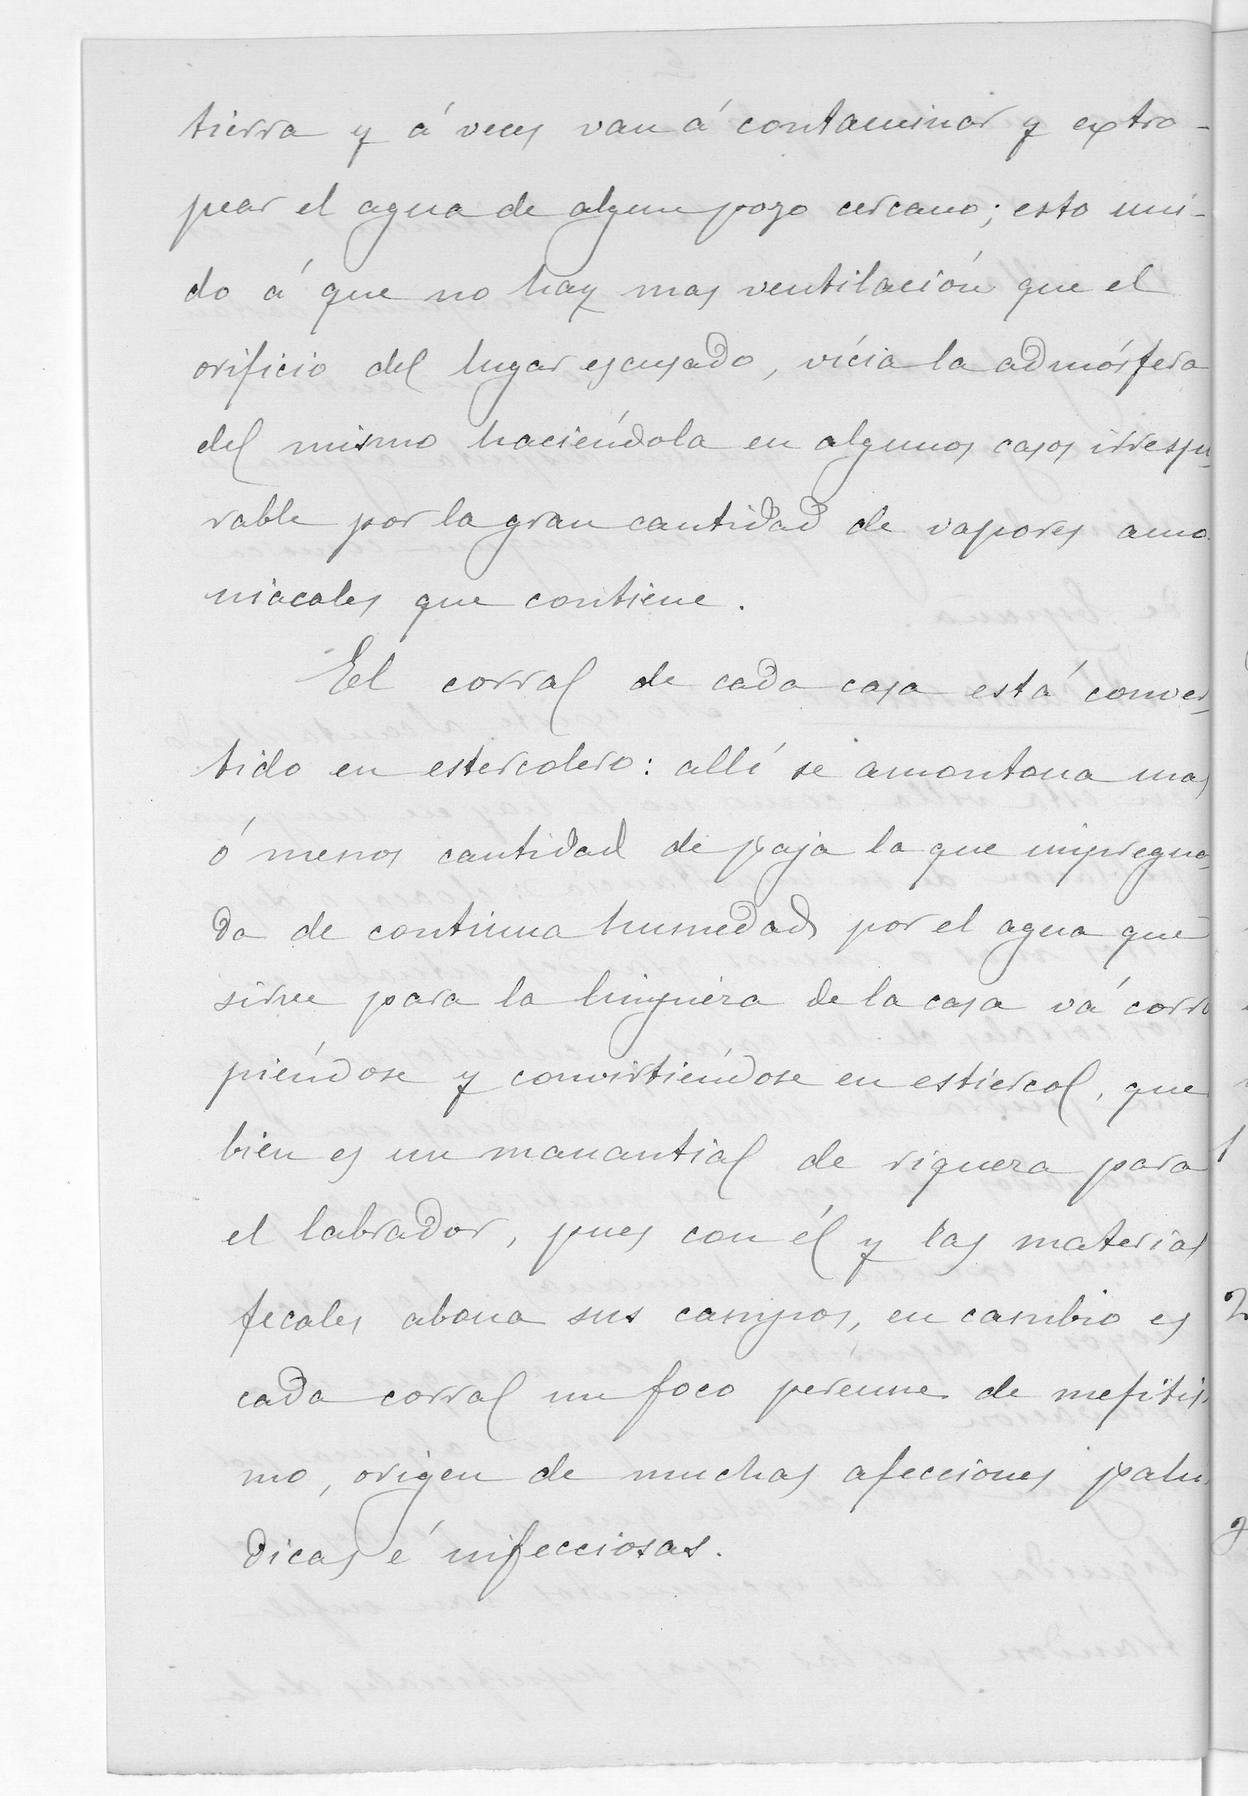 tierra y á veces van á contaminar y extro-
pear el agua de algun pozo cercano; esto uni-
do á que no hay mas ventilación que el
orificio del lugar escusado, vícia la admósfera
del mismo haciéndola en algunos casos irrespi-
rable por la gran cantidad de vapores amo-
niacales que contiene.
El corral de cada casa está conver-
tido en estercolero: allí se amontona mas
ó menos cantidad de paja la que impregna-
da de continua humedad por el agua que
sirve para la limpieza de la casa vá corro
piéndose y convirtiéndose en estiércol, que
bien es un manantial de riqueza para
el labrador, pues con él y las materias
fecales abona sus campos, en cambio es
cada corral un foco perenne de mefitis-
mo, origen de muchas afecciones palu-
dicas é infecciosas.